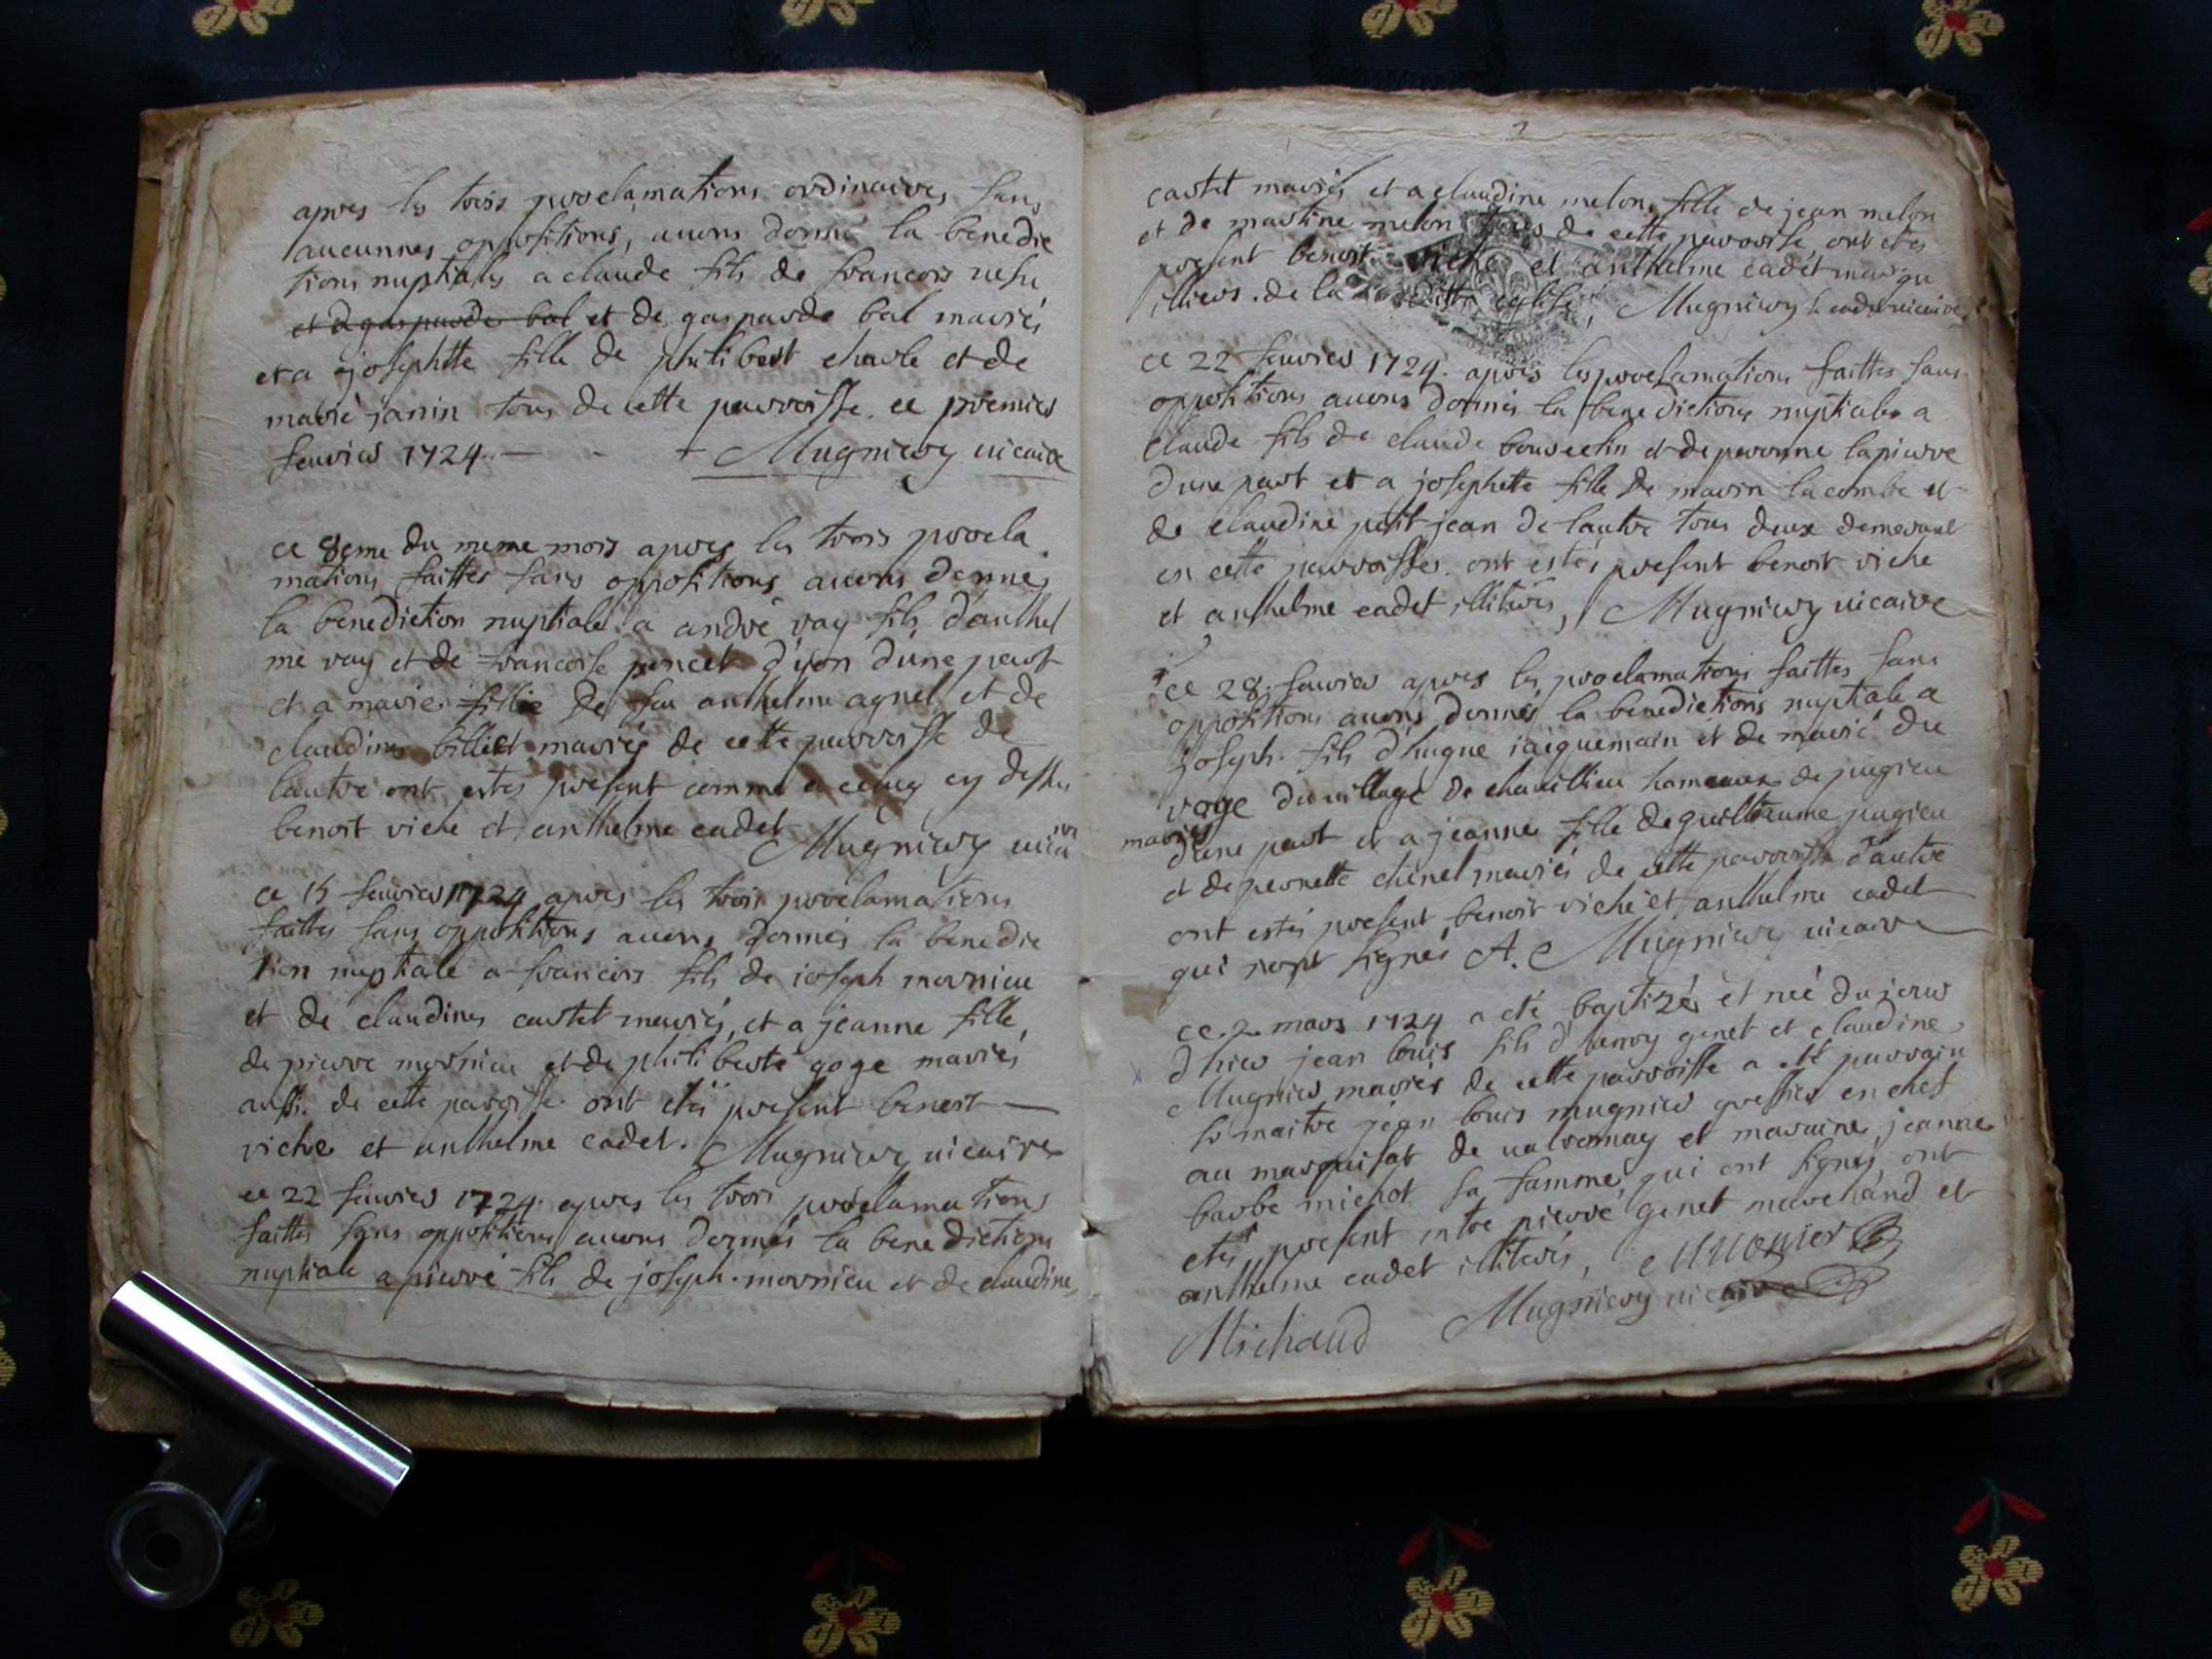 apres les trois proclamations ordinaires sans
aucunnes oppositions, auons donné la benedic
tions nuptiales a claude fils de francois
et de gasparde bal et de gasparde bal mariés
et a josephtte fille de philibert charle et de
marie janin tous de cette parroisse. ce premier
feurier 1724. Mugniery uicaire
ce 8eme du meme mois apres les trois procla
mations faittes sans oppositions auons donnés
la benediction nuptiale a andré ray fils d'anthel
me ray et de francoise poncet d'yon dune part
et a marie fillie de feu anthelme agnel et de
claudine billiet mariés de cette parroisse de
lautre ont estes present comme a celuy cy dessus
benoit viche et anthelme cadet Mugniery uicair
ce 15 feurier 1724 apres les trois proclamations
faittes sans oppositions auons donnés la benedic
tion nuptiale a francois fils de joseph mornieu
et de claudine castet mariés, et a jeanne fille
de pierre mornieu et de philiberte goge mariés
aussi de cette paroisse ont étés present benoit
viche et anthelme cadet. Mugniery uicaire
ce 22 feurier 1724. apres les trois proclamations
faittes sans oppositions auons donnés la benedictions
nuptiale a pierre fils de joseph mornieu et de claudine
2
castet mariés et a claudine melon fille de jean melon
et de martine melon tous de cette parroisse, ont etés
present benoit viche et anthelme cadet margu
illiers de la ditte eglise, Mugniery uicaire
ce 22 feurier 1724. aprés les proclamations faittes sans
oppositions auons donnés la benedictions nuptiales a
claude fils de claude bourcelin et de peronne lapierre
dune part et a josephette fille de marin lacombe et
de claudine petit jean de lautre tous deux demeurant
en cette parroisses. ont estés present benoit viche
et anthelme cadet illiterés, Mugniery uicaire
ce 28. feurier apres les proclamations faittes sans
oppositions auons donnés la benedictions nuptiale a
joseph. fils d'hugue iacquemain et de marie du
voge du uillage de chauillieu hameaux de pugieu
mariés
dune part et a jeanne fille de guilliaume pugieu
et de pernette chenel mariés de cette parroisse d'autre
ont estés present benoit viche et anthelme cadet
qui nont signés A. Mugniery uicaire
ce. 2. mars 1724 a eté baptizés et neé du jour
dhier jean louis fils d'henry genet et claudine
Mugnier mariés de cette parroisse a eté parrain
sr maitre jean louis mugnier greffier en chef
au marquisat de ualromay et maraine jeanne
barbe michot sa famme qui ont signés, ont
etés present mtre pierre genet marchand et
anthelme cadet illiterés, Mugnier
Michaud Mugniery uicaire